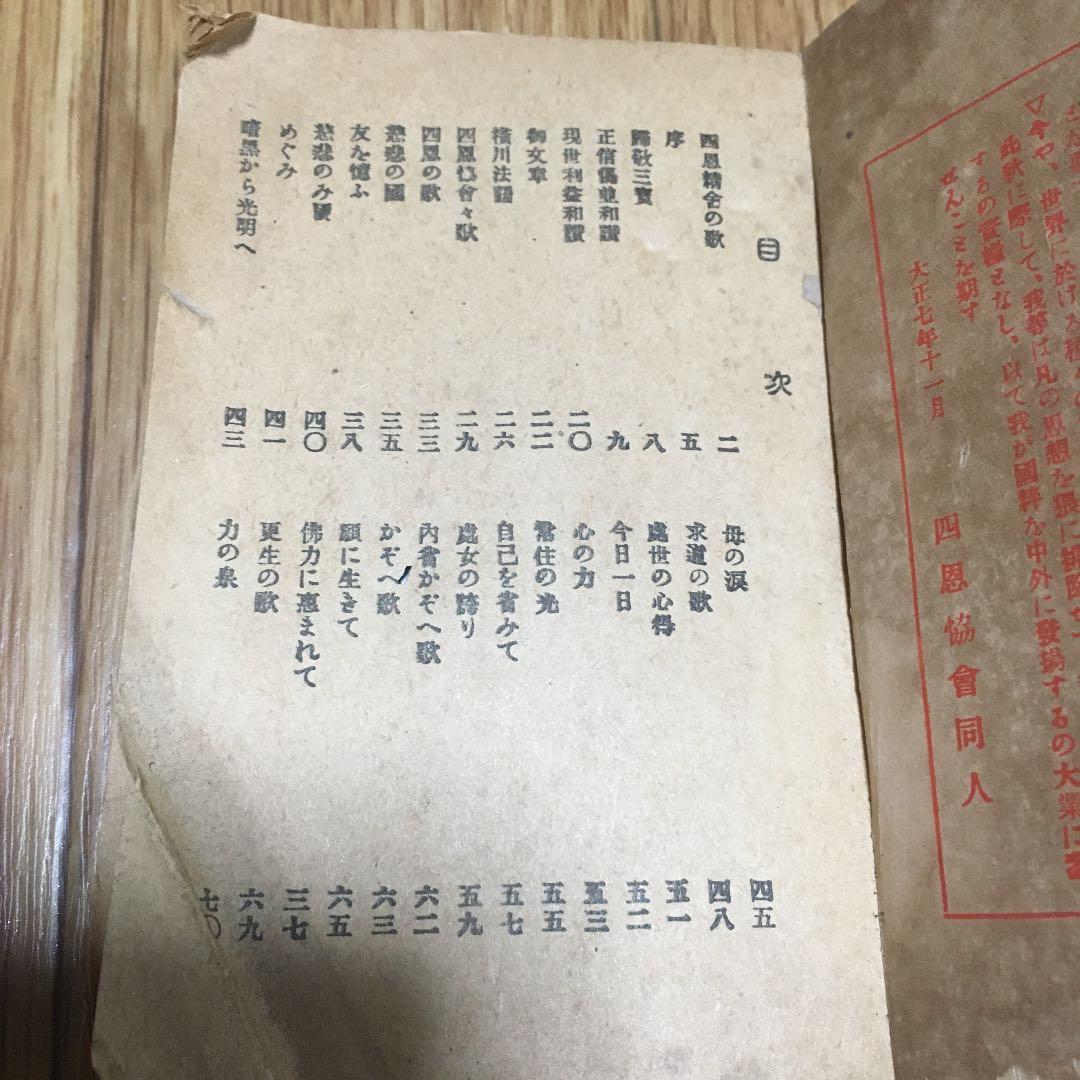 ▽今や、世界に於ける
此秋に際して、我等は凡の思想を猥に排除せ
するの となし、以て我が國粹を中外に發揚するの大業に
せんことを期す
大正七年十一月
四恩協會同人
目次
四恩精舍の歌 二
序 五
歸敬三寶 八
正信偈並和讃 九
現世利益和讃 二〇
御文章 二二
横川法語 二六
四恩協會々歌 二九
四恩の歌 三三
慈悲の國 三五
友を憶ふ 三八
慈悲のみ 四〇
めぐみ 四一
暗黑から光明へ 四三
母の涙 四五
求道の歌 四八
處世の心得 五一
今日一日 五二
心の力 五三
常住の光 五五
自己を省みて 五七
處女の誇り 五九
内省かぞへ歌 六二
かぞへ歌 六三
願に生きて 六五
佛力に惠まれて 三七
更生の歌 六九
力の泉 七〇